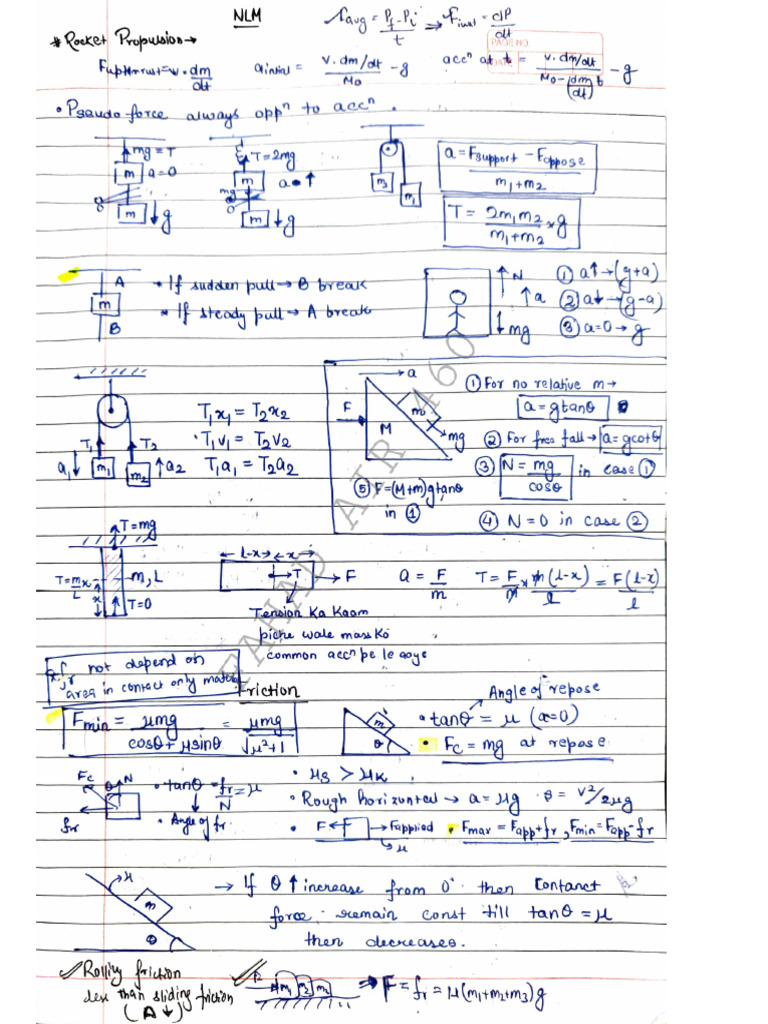 NLM
F avg = Pf - Pi / t → F inst = dP / dt
PAGE NO.
DATE
* Rocket Propulsion →
Fupthrust = v. dm/dt  a initial = v. dm/dt / M0 - g  accn at t = v. dm/dt / M0 - (dm/dt) t - g
• Pseudo force always oppn to accn.
mg = T
m a=0
m ↓g
T=2mg
m a ↑
mg
m ↓g
m3
m1
a = Fsupport - Foppose / m1+m2
T = 2m1m2 / m1+m2 × g
A
m
B
* If sudden pull → B break
* If steady pull → A break
↑N
↑a
↓mg
① a↑ → (g+a)
② a↓ → (g-a)
③ a=0 → g
T1 T2
a1↓ m1 m2 ↑a2
T1x1 = T2x2
• T1v1 = T2v2
T1a1 = T2a2
→ a
F →
M
m
mg
① For no relative m →
a = g tanθ
② For free fall → a = g cotθ
③ N = mg / cosθ in case ①
④ N = 0 in case ②
⑤ F = (M+m) g tanθ
in ①
FAHAD AIR 460
T=mg
T = m/L x
x
m, L
T=0
l-x x
→T → F
a = F/m T = F/m × m(l-x)/l = F(l-x)/l
Tension Ka Kaam
piche wale mass Ko
common accn pe le aaye
* fr not depend on
area in contact only material
Friction
Fmin = μmg / cosθ + μsinθ = μmg / √μ²+1
m
θ
Angle of repose
• tanθ = μ (a=0)
• Fc = mg at repose
Fc N
fr
• tanθ = fr/N = μ
• Angle of fr.
• μs > μk
• Rough horizontal → a = μg s = v²/2μg
• F ← → Fapplied
μ
• Fmax = Fapp + fr, Fmin = Fapp - fr
μ
m
θ
→ If θ ↑ increase from 0° then Contanct
force remain const till tanθ = μ
then decreases.
✓ Rolling friction
less than sliding friction
(A ↓)
m1 m2 m2
⇒ F = fr = μ(m1+m2+m3)g